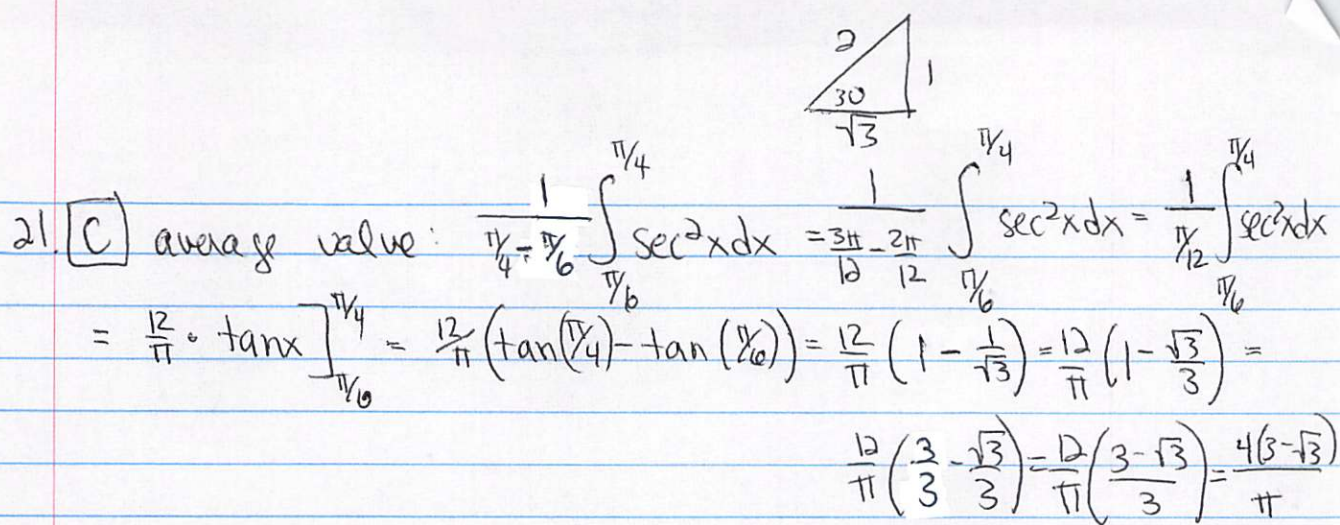 2 1
30
√3
21. C average value: 1/(π/4 - π/6) ∫_{π/6}^{π/4} sec²x dx = 1/(3π/12 - 2π/12) ∫_{π/6}^{π/4} sec²x dx = 1/(π/12) ∫_{π/6}^{π/4} sec²x dx
= 12/π · tanx ]_{π/6}^{π/4} = 12/π (tan(π/4) - tan(π/6)) = 12/π (1 - 1/√3) = 12/π (1 - √3/3) =
12/π (3/3 - √3/3) = 12/π ((3-√3)/3) = 4(3-√3)/π